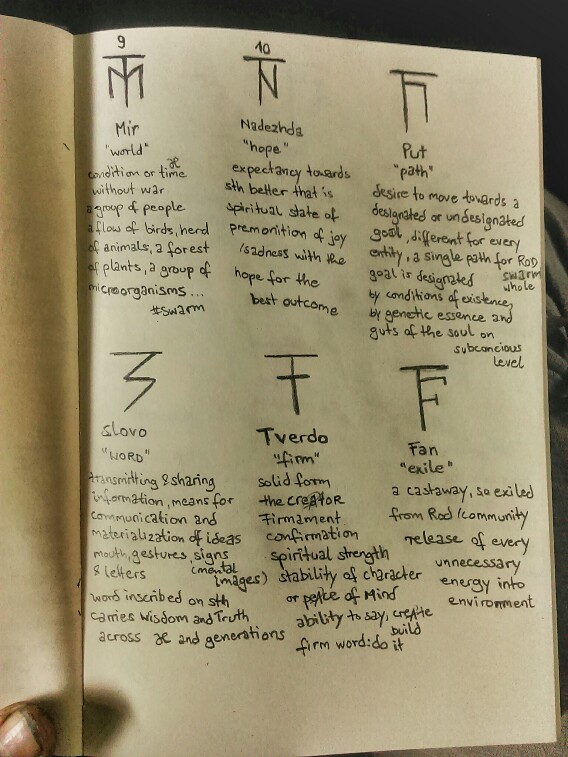 9
Mir
"world"
condition or time
without war
a group of people
a flow of birds, herd
of animals, a forest
of plants, a group of
microorganisms...
#swarm
10
Nadezhda
"hope"
expectancy towards
sth better that is
spiritual state of
premonition of joy
/sadness with the
hope for the
best outcome
Put
"path"
desire to move towards a
designated or undesignated
goal, different for every
entity, a single path for ROD
swarm
whole
goal is designated
by conditions of existence,
by genetic essence and
guts of the soul on
subconcious
level
Slovo
"WORD"
transmitting & sharing
information, means for
communication and
materialization of ideas
mouth, gestures, signs
& letters
(mental
images)
word inscribed on sth
carries Wisdom and Truth
across æ and generations
Tverdo
"firm"
solid form
the creatoR
Firmament
confirmation
spiritual strength
stability of character
or peace of Mind
ability to say, create
build
firm word: do it
Fan
"exile"
a castaway, so exiled
from Rod/community
release of every
unnecessary
energy into
environment